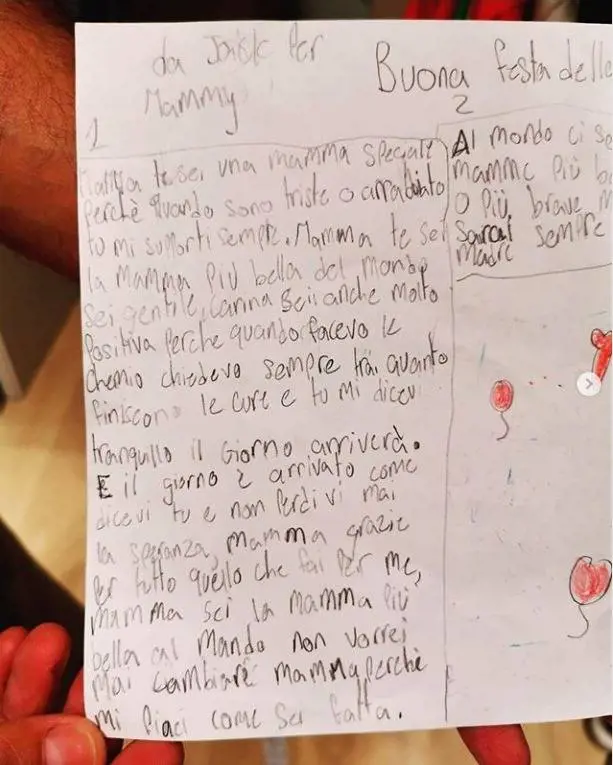 da per
Mammy
Buona festa delle
1
2
Mamma te sei una mamma speciale
perchè quando sono triste o arrabbiato
tu mi supporti sempre. Mamma te sei
la mamma più bella del mondo
sei gentile, carina sei anche molto
positiva perche quando facevo le
chemio chiedevo sempre tra quanto
finiscono le cure e tu mi dicevi
tranquillo il Giorno arriverà.
E il giorno è arrivato come
dicevi tu e non perdivi mai
la speranza, mamma grazie
per tutto quello che fai per me,
mamma sei la mamma più
bella al mando non vorrei
mai cambiare mamma perchè
mi piaci come sei fatta.
Al mondo ci so
mamme più be
o più brave m
sarai sempre
madre